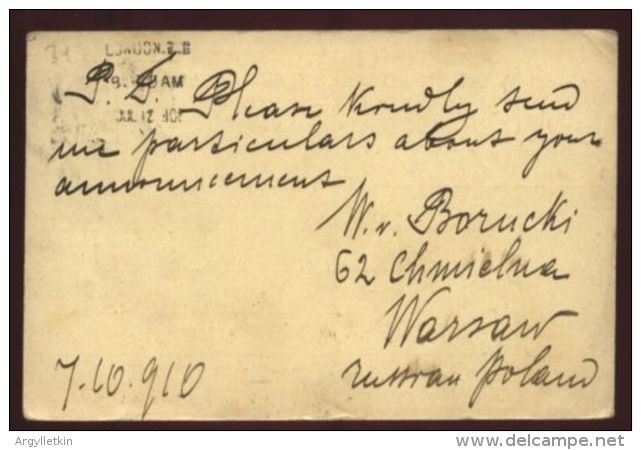 LONDON. E.
AM
P. S. Please kindly send
me particulars about your
announcement
W. v. Borucki
62 Chmielna
Warsaw
russian Poland
7.10.910
Argylletkin
www.delcampe.net